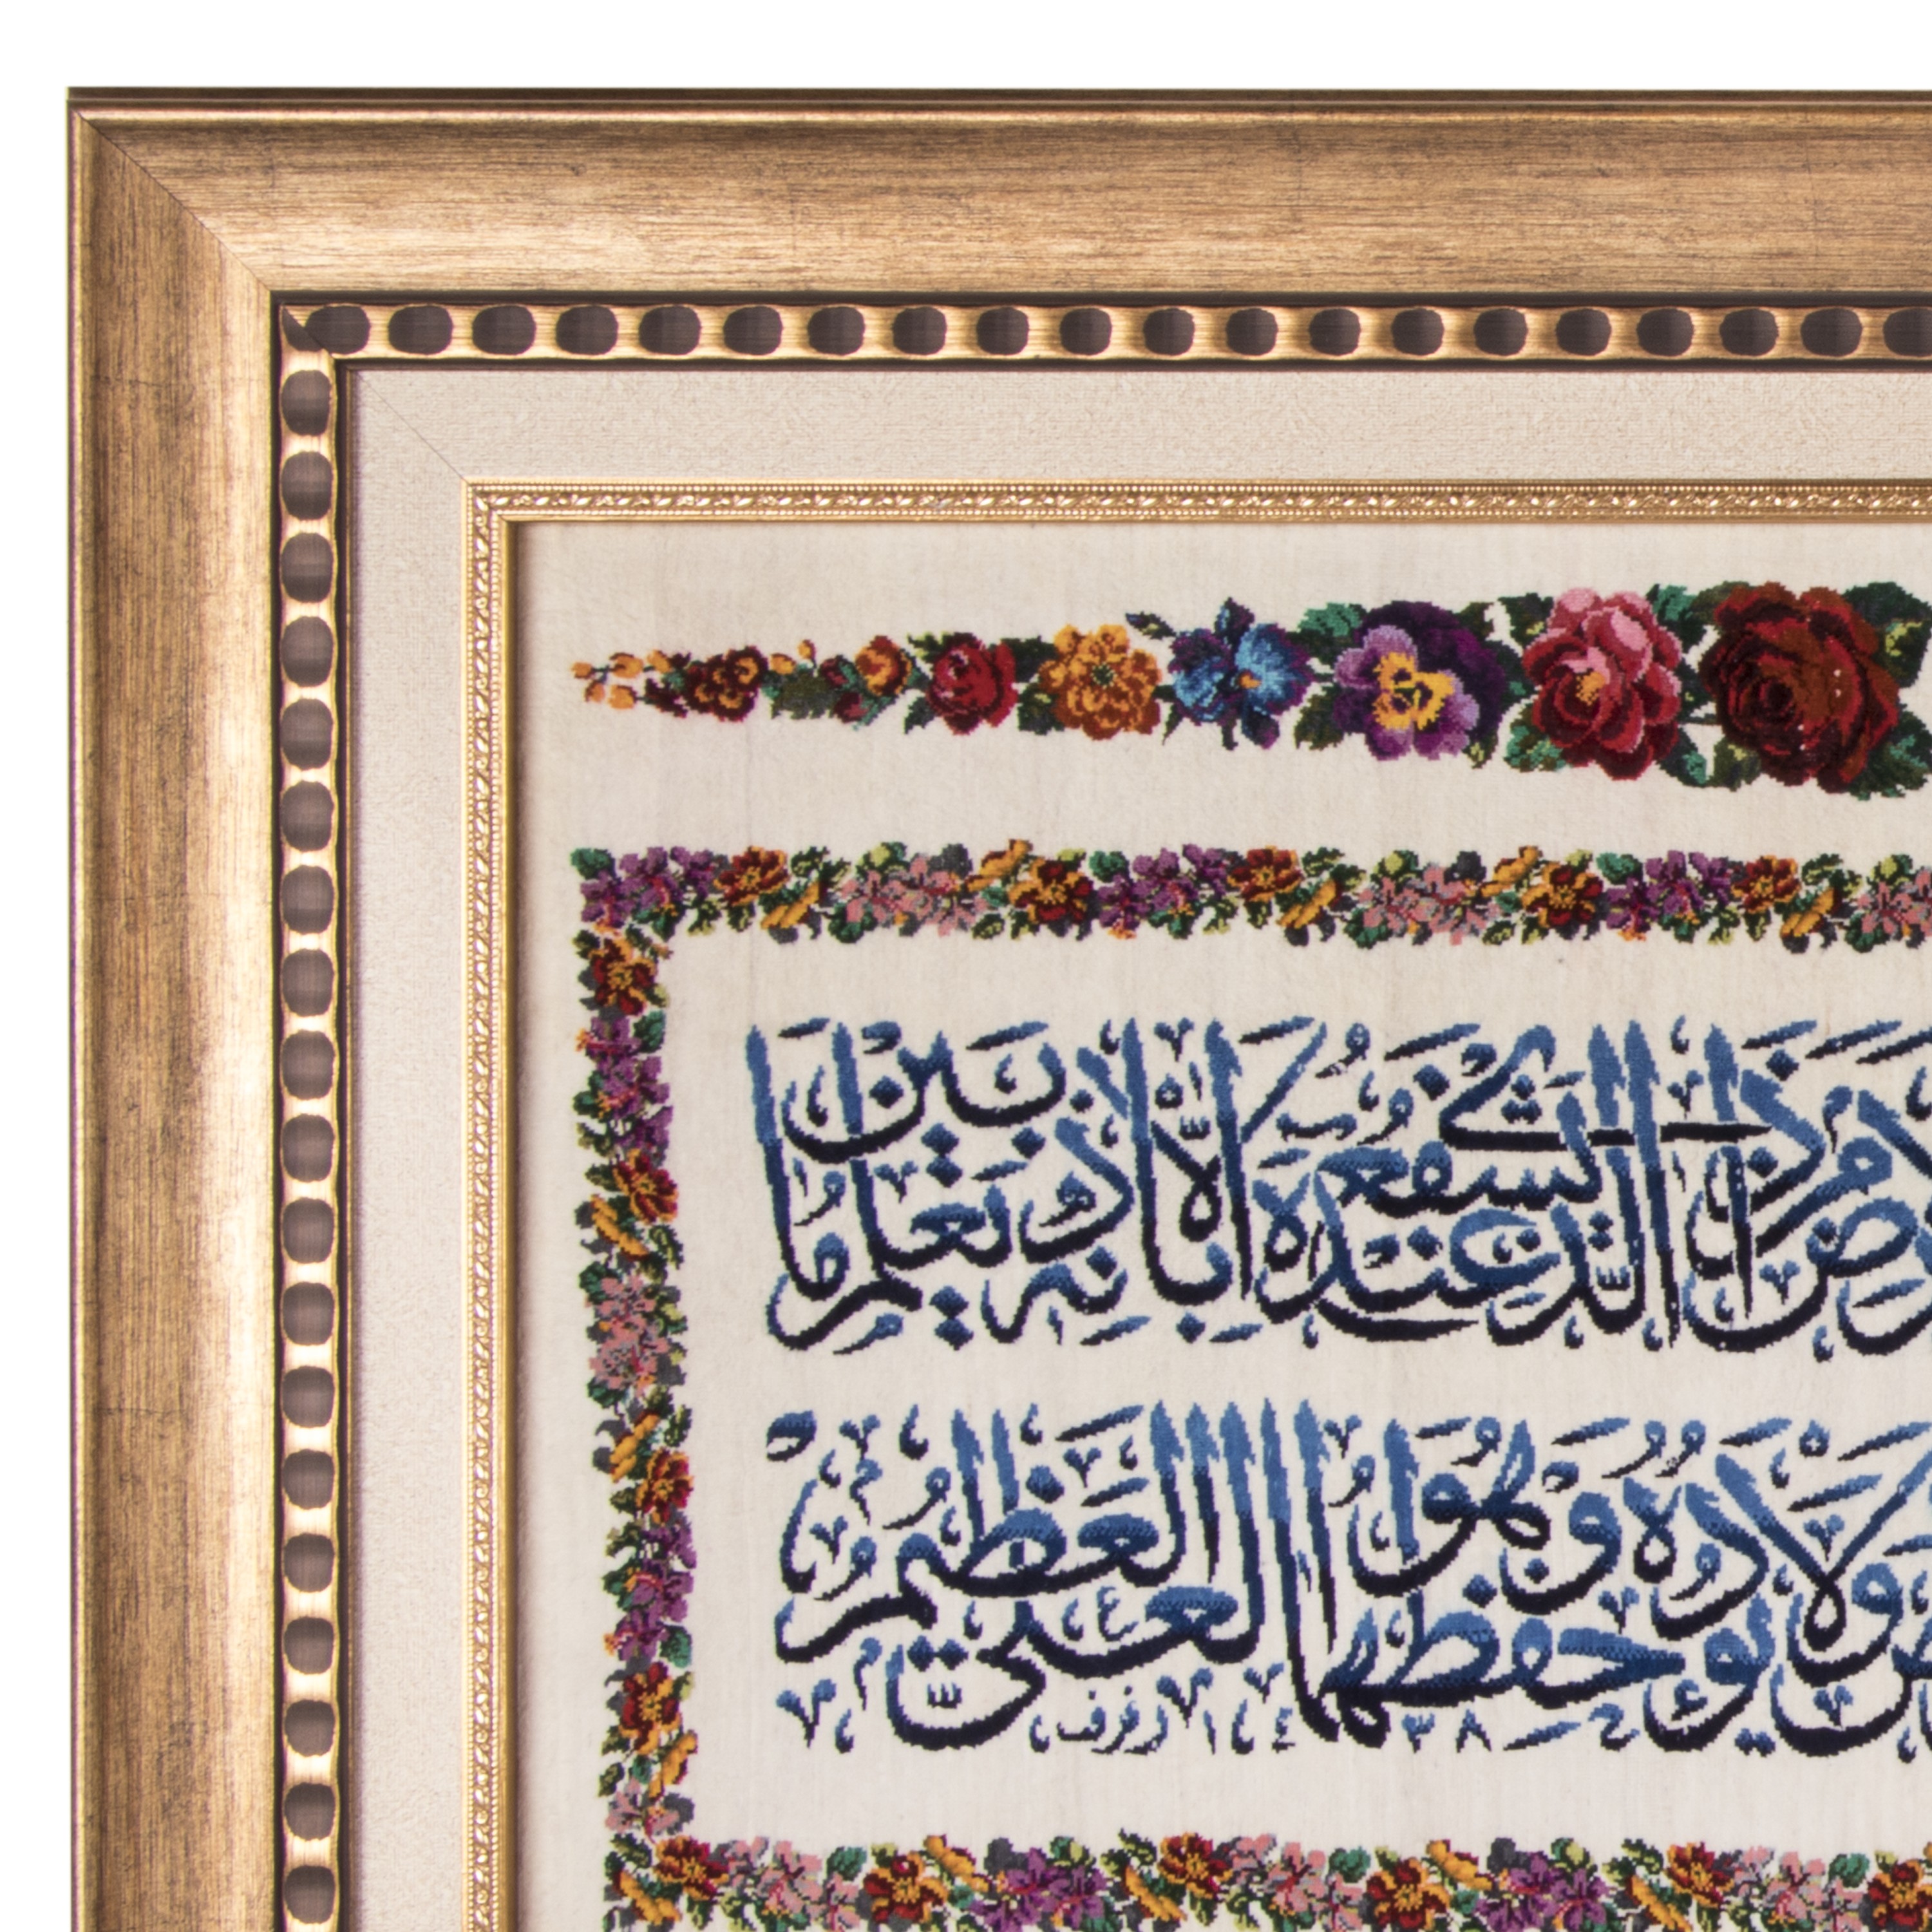 مَن ذَا الَّذِي يَشْفَعُ عِندَهُ إِلَّا بِإِذْنِهِ يَعْلَمُ مَا بَيْنَ
وَلَا يَئُودُهُ حِفْظُهُمَا وَهُوَ الْعَلِيُّ الْعَظِيمُ